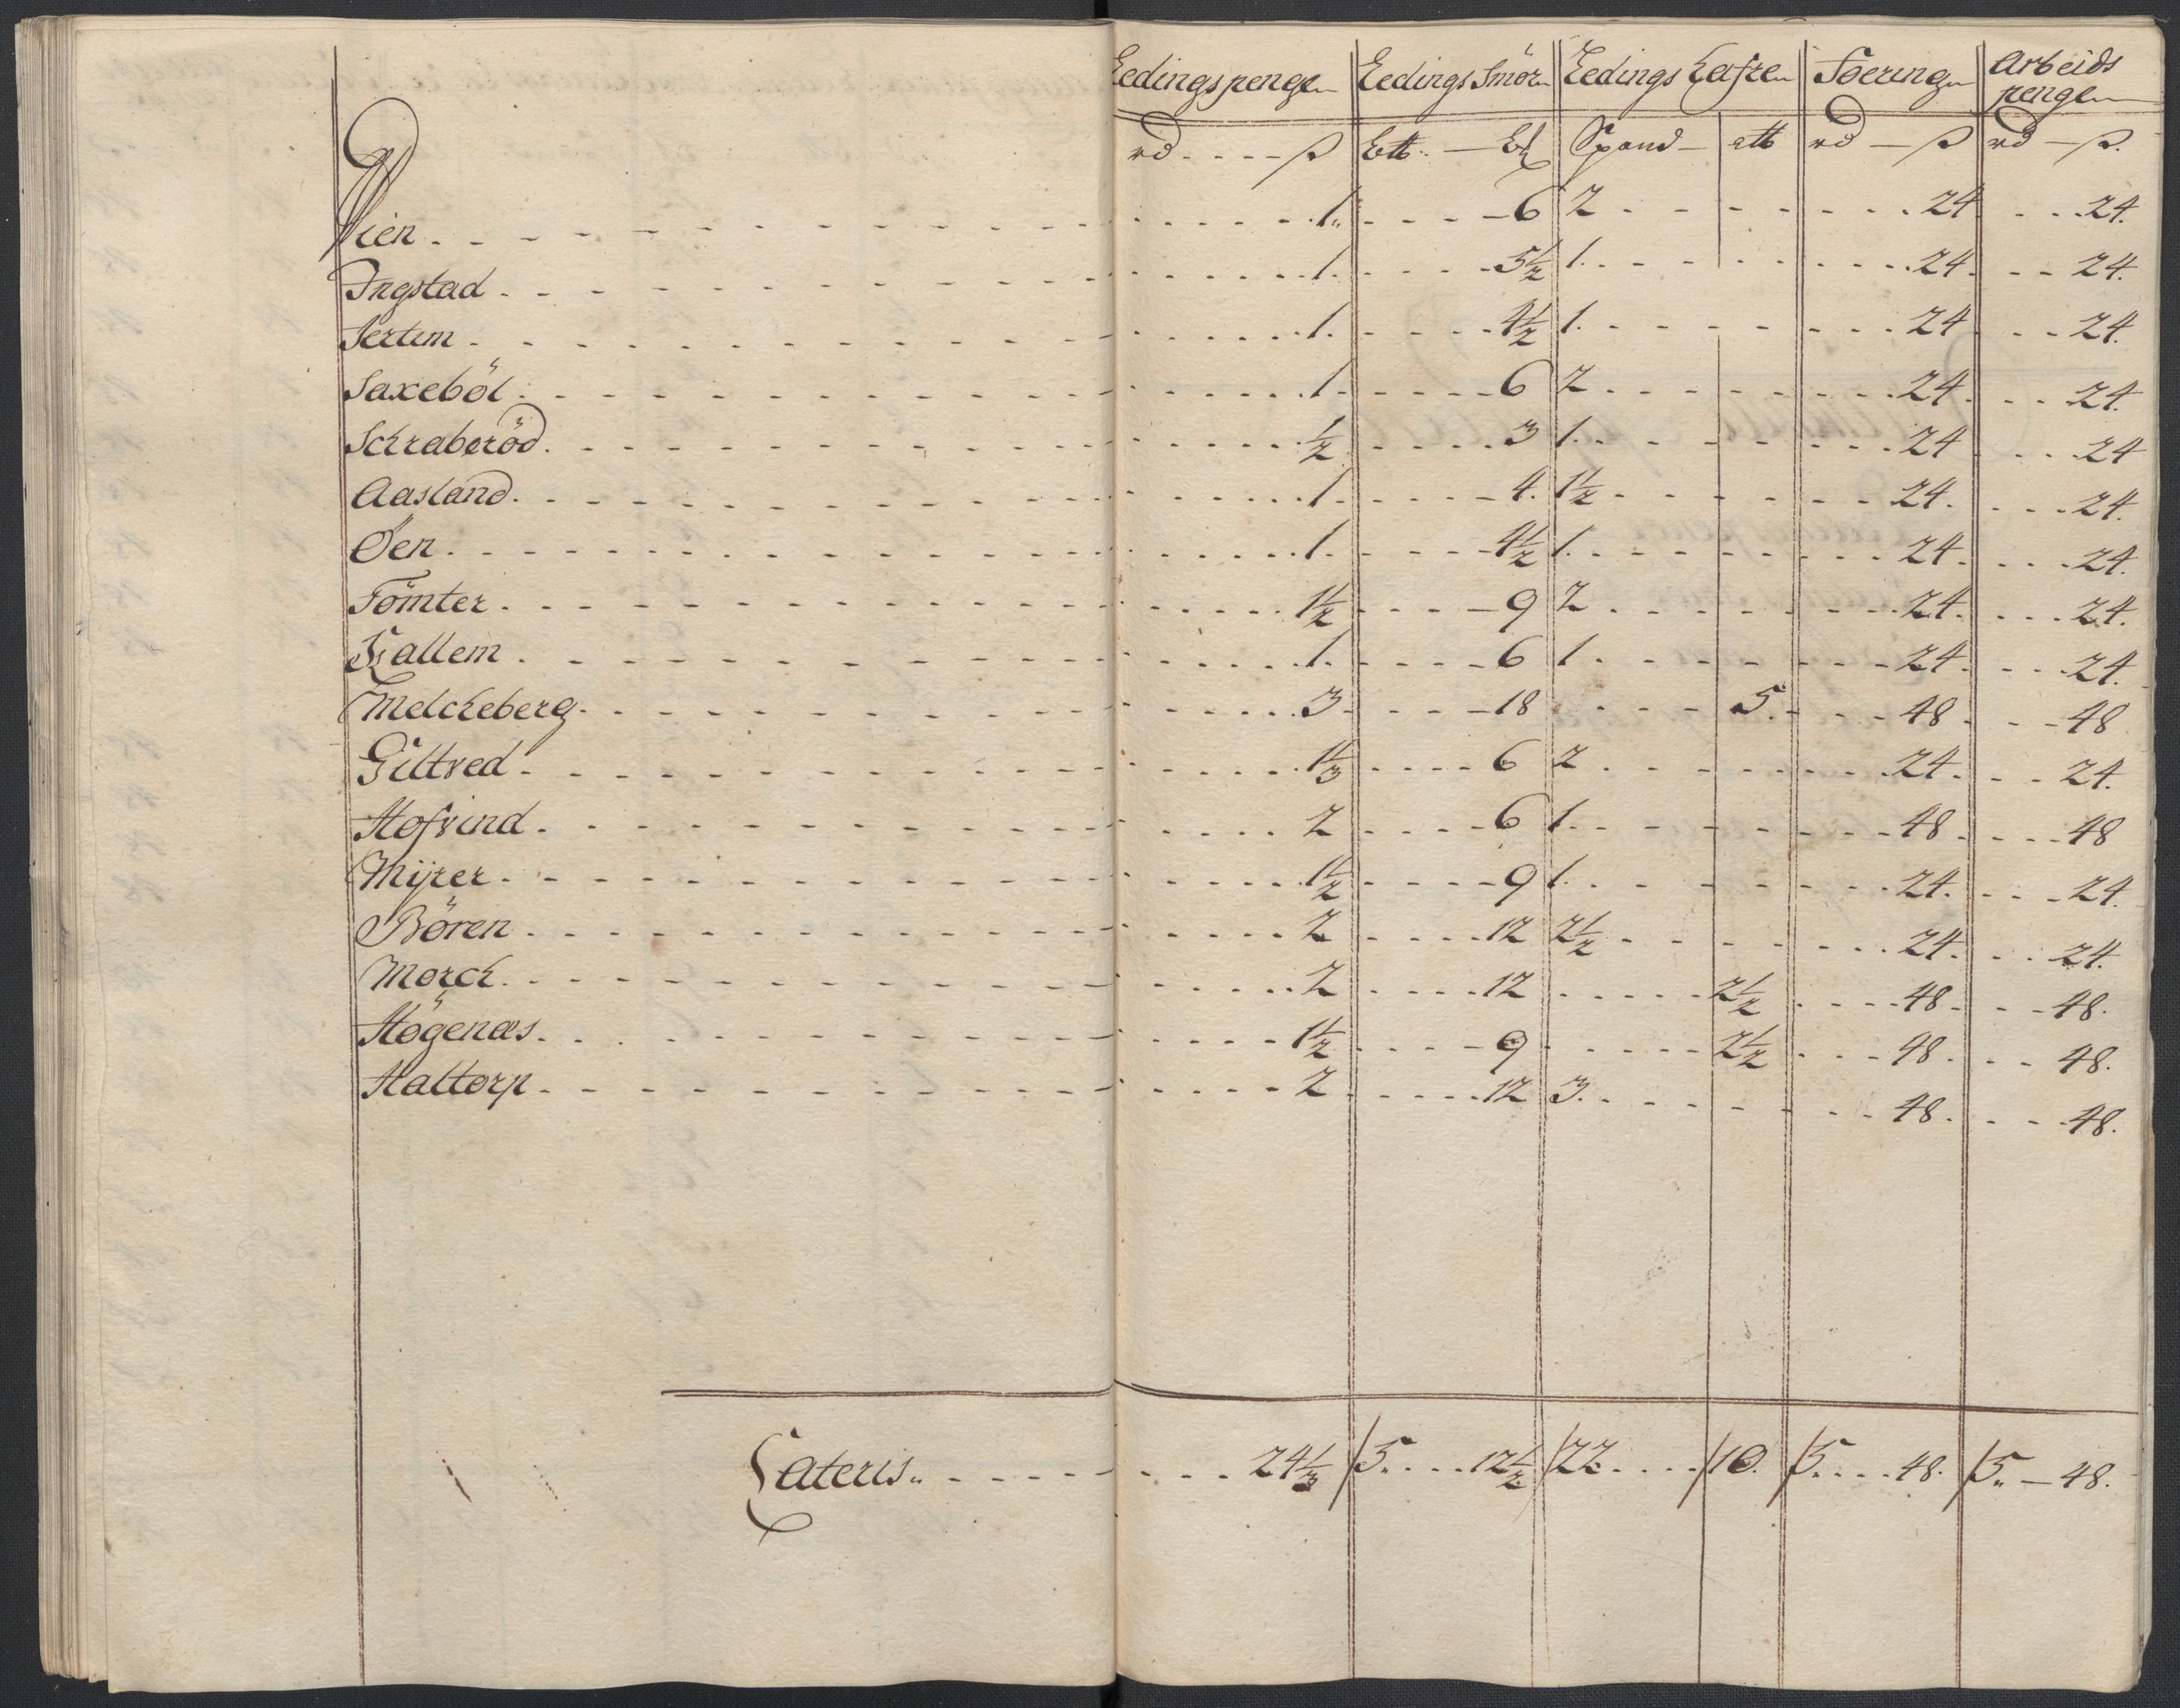 Ledingspenge Ledings Smör Ledings Hafre Foering Arbeids
penge
rd ß Ett Spand ett rd ß rd ß
Vien 1 6 2 24 24.
Ingstad 1. 5½ 1. 24. 24.
Sertim 1. 4½ 1. 24 24.
Saxeböl 1 6 2 24. 24.
Schraberöd ½ 3 1. 24 24
Aasland 1 4. 1½ 24. 24.
Öen 1. 4½ 1. 24. 24.
Tömter 1½ 9 2 24. 24.
Hallem 1. 6 1 24. 24.
Melcheberg 3 18 5. 48 48
Giltved 1⅓ 6 2 24. 24.
Hofvind 2 6 1. 48 48
Mijrer 1½ 9 1. 24. 24.
Bören 2 12 2½ 24. 24.
Morch 2 12 2½ 48 48.
Högenæs 1½ 9 2½ 48. 48.
Haltorp 2 12 3. 48. 48.
Lateris 24⅓ 5. 12½ 22 10. 5. 48. 5. 48.